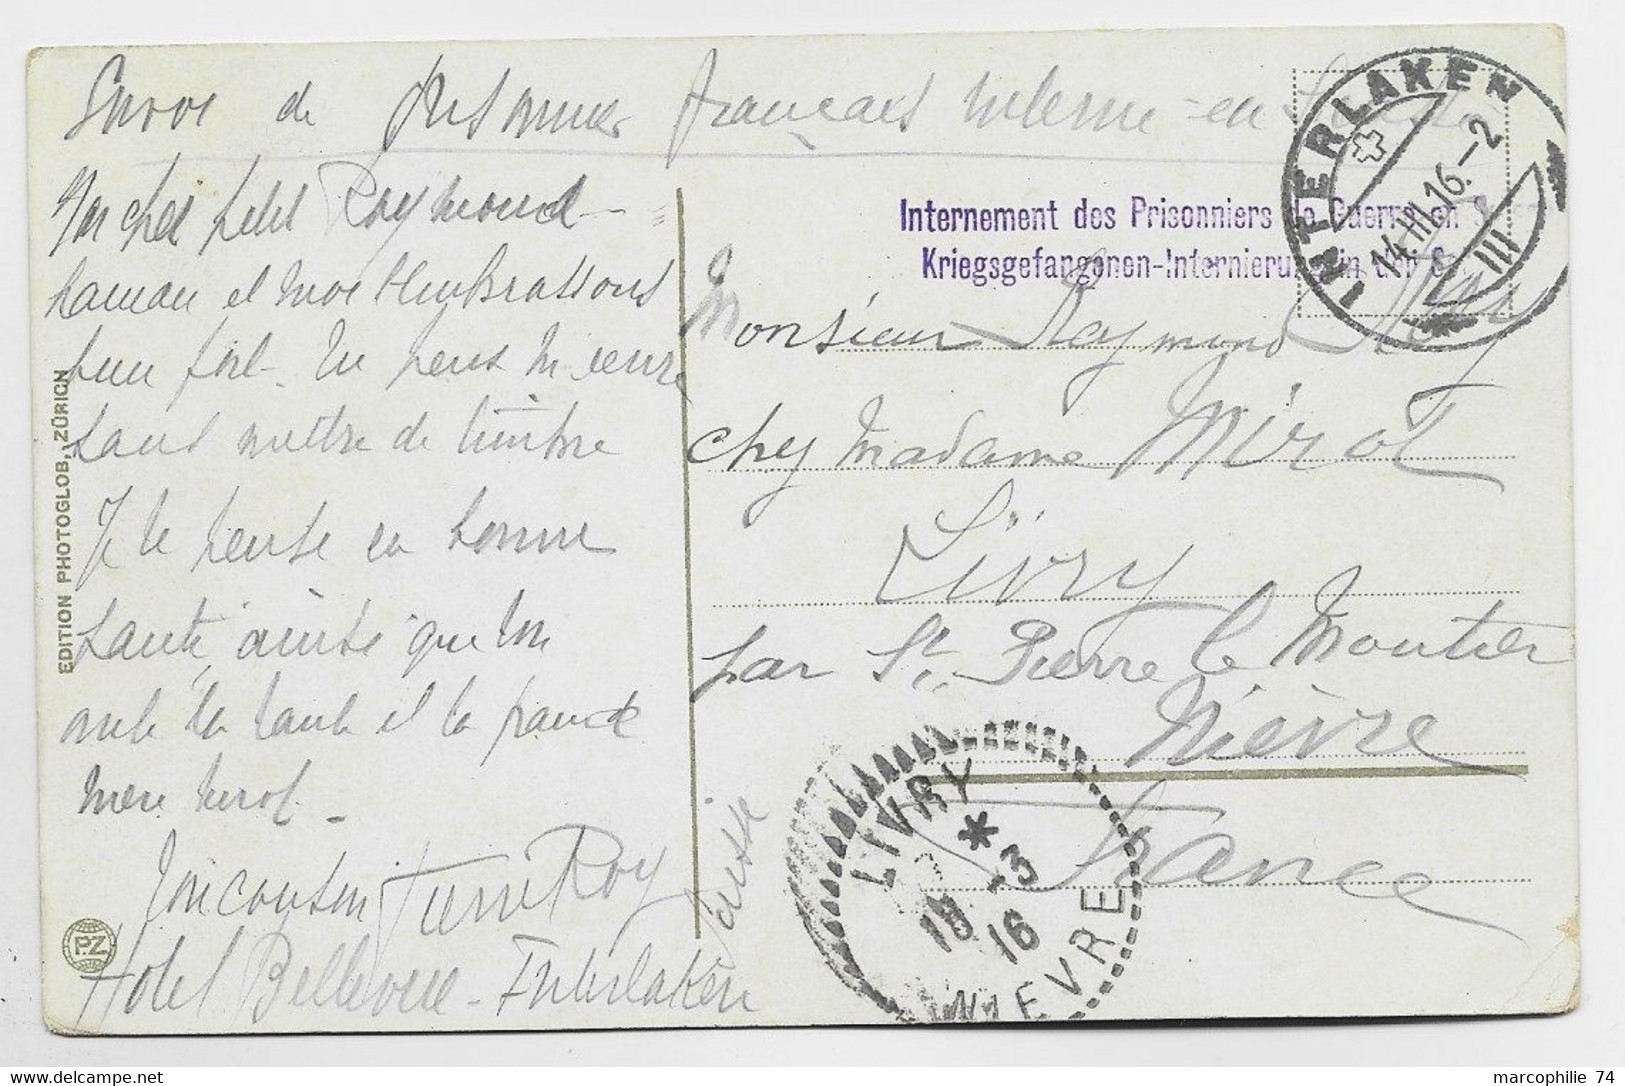 Envoi de prisonnier français interné en Suisse
Mon cher petit Raymond
Maman et moi t'embrassons
bien fort. Tu peux m'écrire
sans mettre de timbre
Je te pense en bonne
santé, ainsi que ton
ta tante et ta grande
mère Mirot.
Ton cousin Pierre Roy
Hotel Bellevue - Interlaken
Suisse
EDITION PHOTOGLOB, ZÜRICH
P.Z
Internement des Prisonniers de Guerre en
Kriegsgefangenen-Internierung in der
INTERLAKEN
14.III.16.-2
III
Monsieur Raymond Roy
chez Madame Mirot
Livry
par St. Pierre le Moutier
Nièvre
France
LIVRY
*
18 -3
16
NIEVRE
marcophilie 74